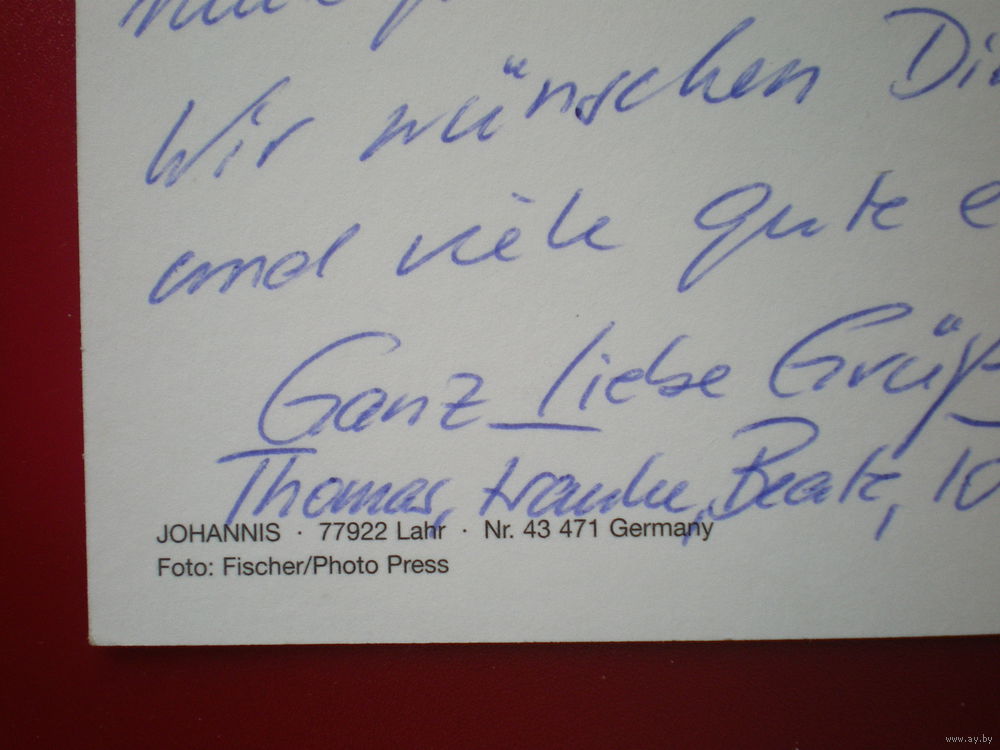 Wir wünschen Di
und viele gute e
Ganz liebe Grüß
Thomas, Frauke, Beate, 10
JOHANNIS · 77922 Lahr · Nr. 43 471 Germany
Foto: Fischer/Photo Press
www.ay.by